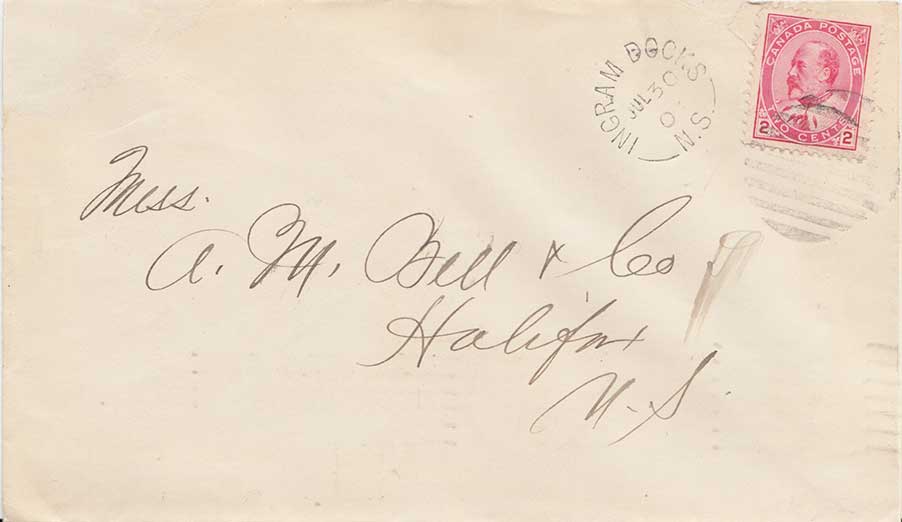 INGRAM DOCKS
JUL 30
0
N.S.
CANADA POSTAGE
2 TWO CENTS 2
Mess.
A. M. Bell & Co
Halifax
N.S.